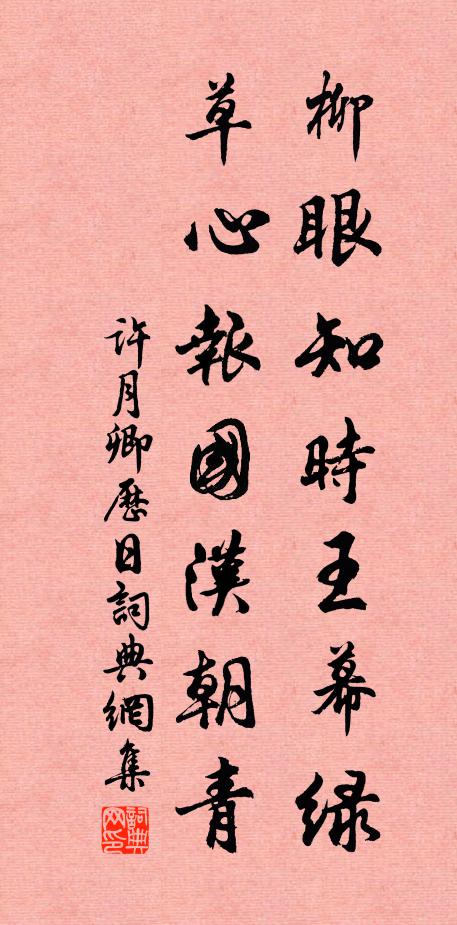 柳眼知時王幕绿
草心報國漢朝青
許月卿歷日詞典網集
詞典网印